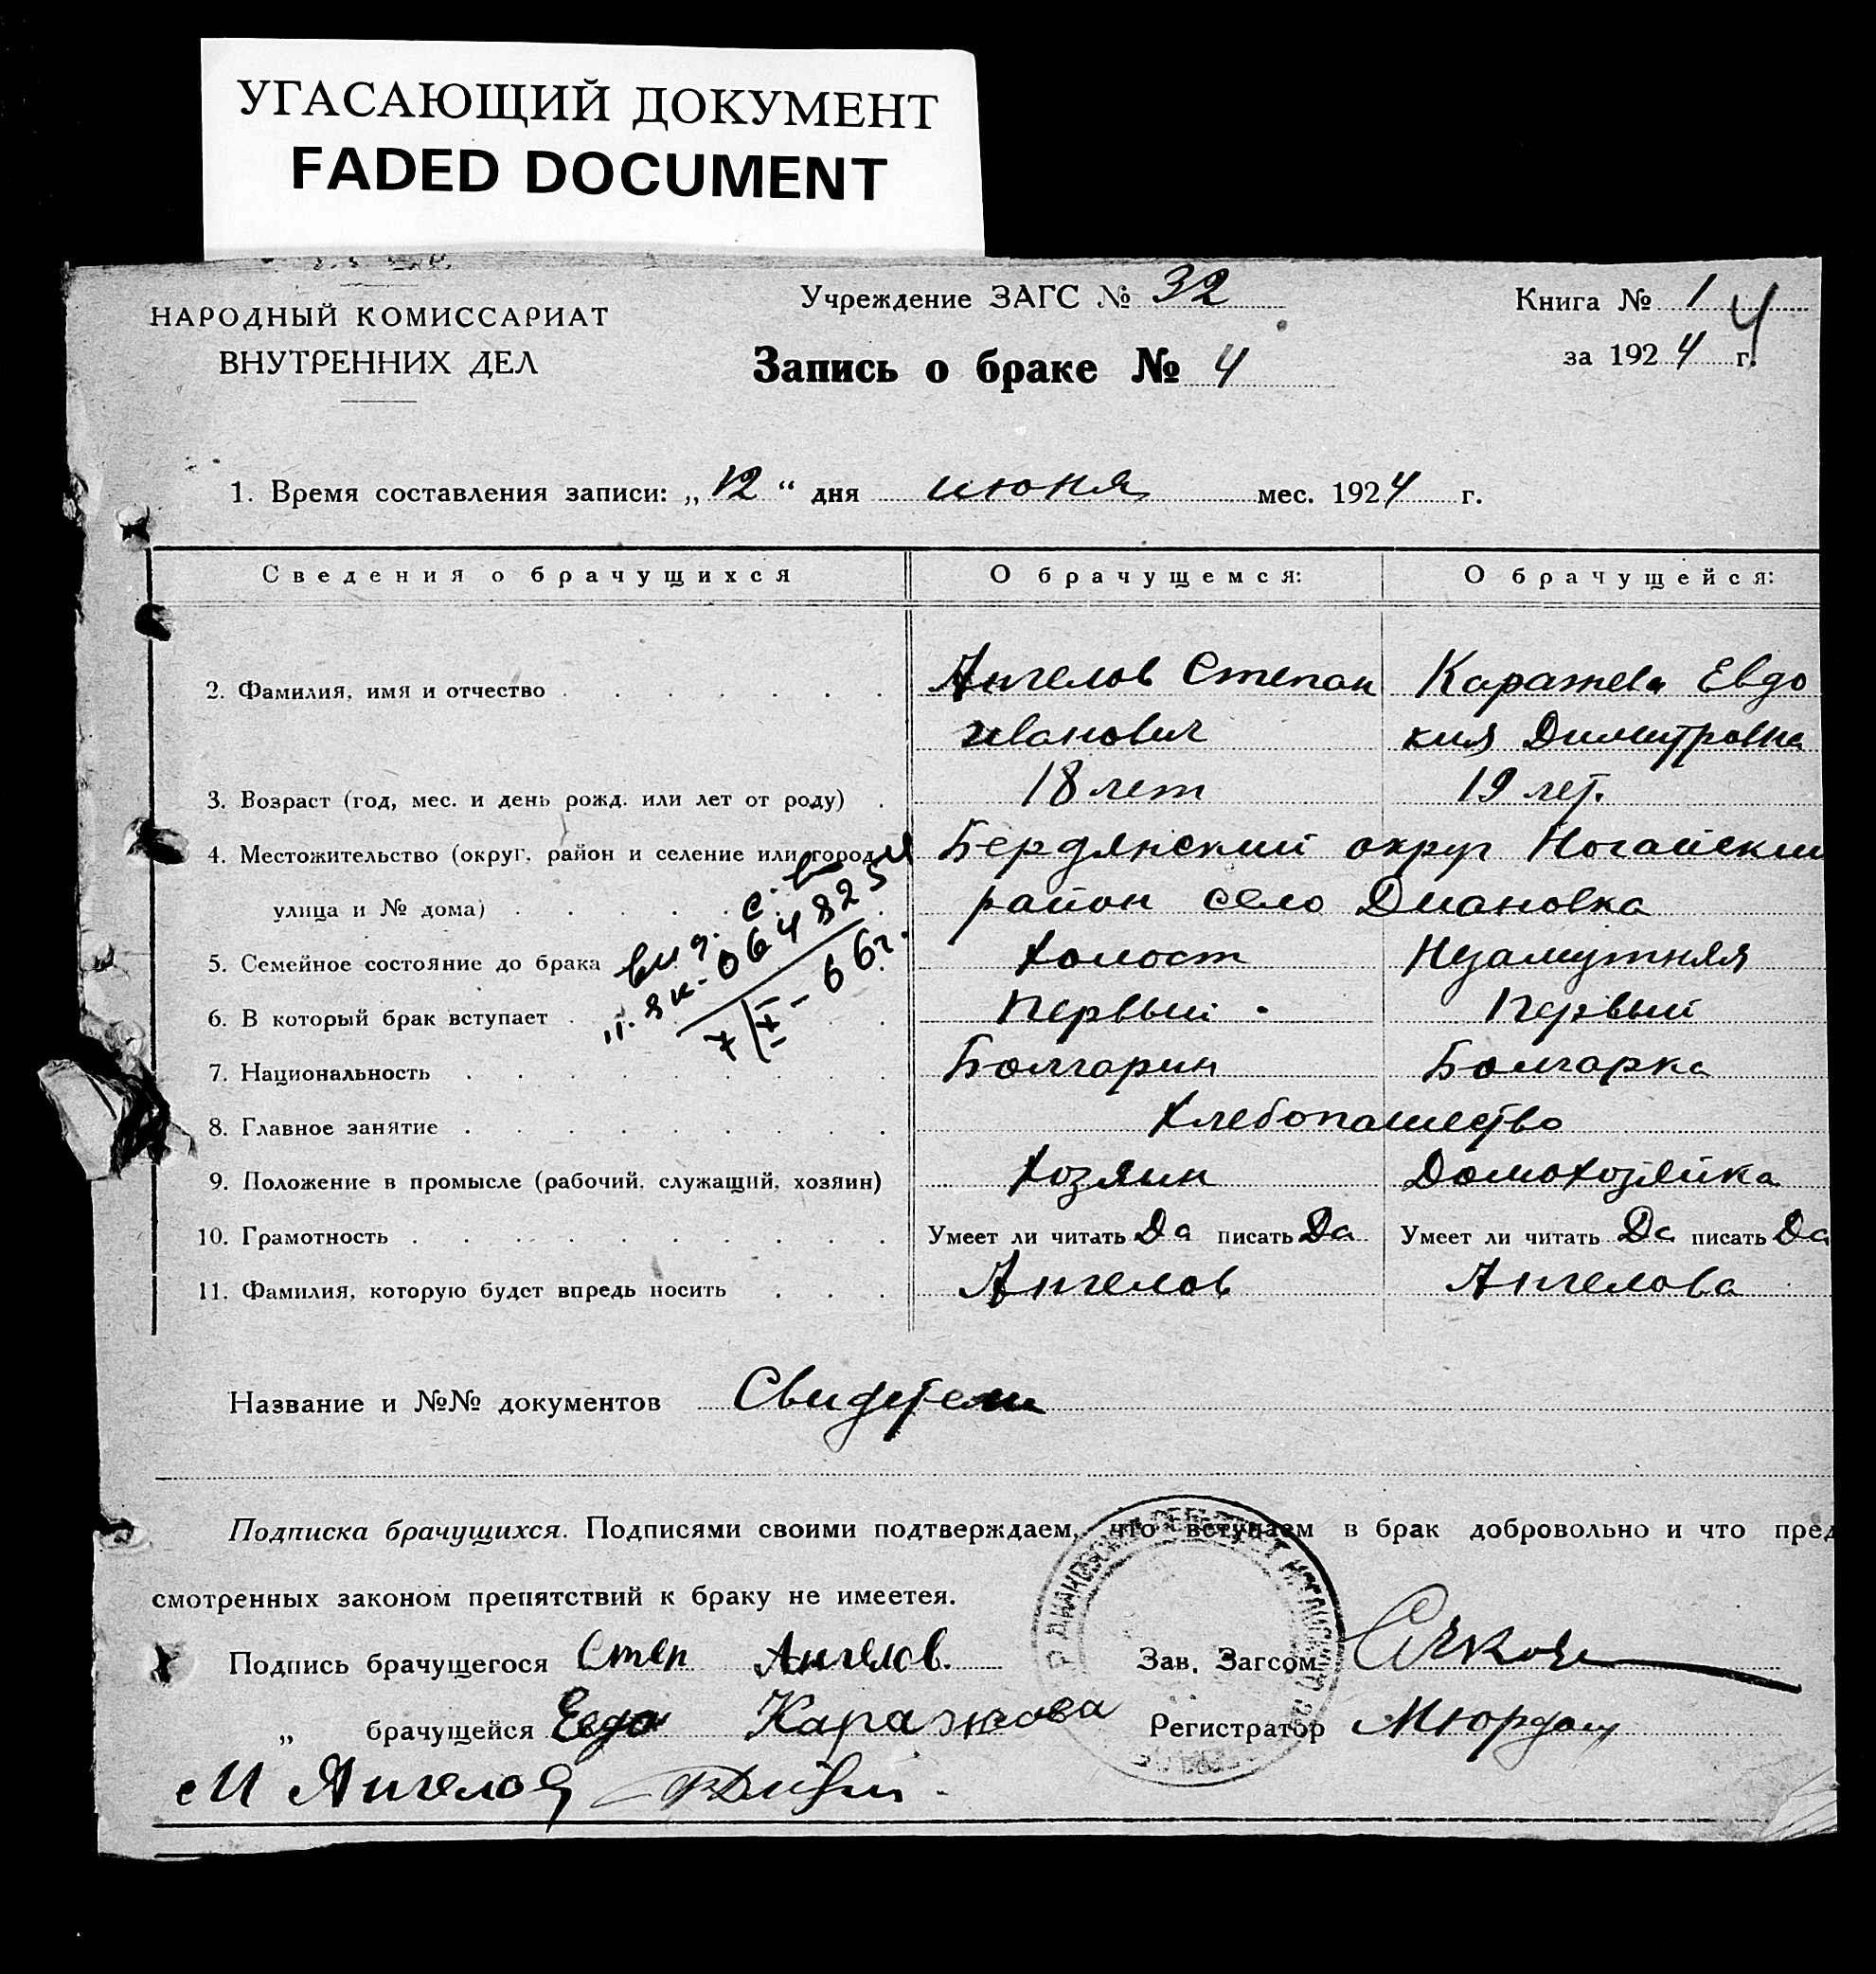 УГАСАЮЩИЙ ДОКУМЕНТ
FADED DOCUMENT
НАРОДНЫЙ КОМИССАРИАТ
ВНУТРЕННИХ ДЕЛ
Учреждение ЗАГС № 32
Запись о браке № 4
Книга № 1
4
за 1924 г.
1. Время составления записи: „12“ дня июня мес. 1924 г.
Сведения о брачущихся О брачущемся: О брачущейся:
2. Фамилия, имя и отчество Ангелов Степан Каражева Евдо
Иванович кия Димитровна
3. Возраст (год, мес. и день рожд. или лет от роду) 18 лет 19 лет.
4. Местожительство (округ, район и селение или город, Бердянский округ Ногайский
улица и № дома) район село Диановка
5. Семейное состояние до брака Холост Незамужняя
6. В который брак вступает Первый Первый
7. Национальность Болгарин Болгарка
8. Главное занятие Хлебопашество
9. Положение в промысле (рабочий, служащий, хозяин) Хозяин Домохозяйка
10. Грамотность Умеет ли читать Да писать Да Умеет ли читать Да писать Да
11. Фамилия, которую будет впредь носить Ангелов Ангелова
выд. с. во
як-064825
7/IX-66г.
Название и №№ документов Свидетели
Подписка брачущихся. Подписями своими подтверждаем, что вступаем в брак добровольно и что пред
смотренных законом препятствий к браку не имеетея.
Подпись брачущегося Степ Ангелов. Зав. Загсом
„ брачущейся Евдо Каражова Регистратор
М Ангелов